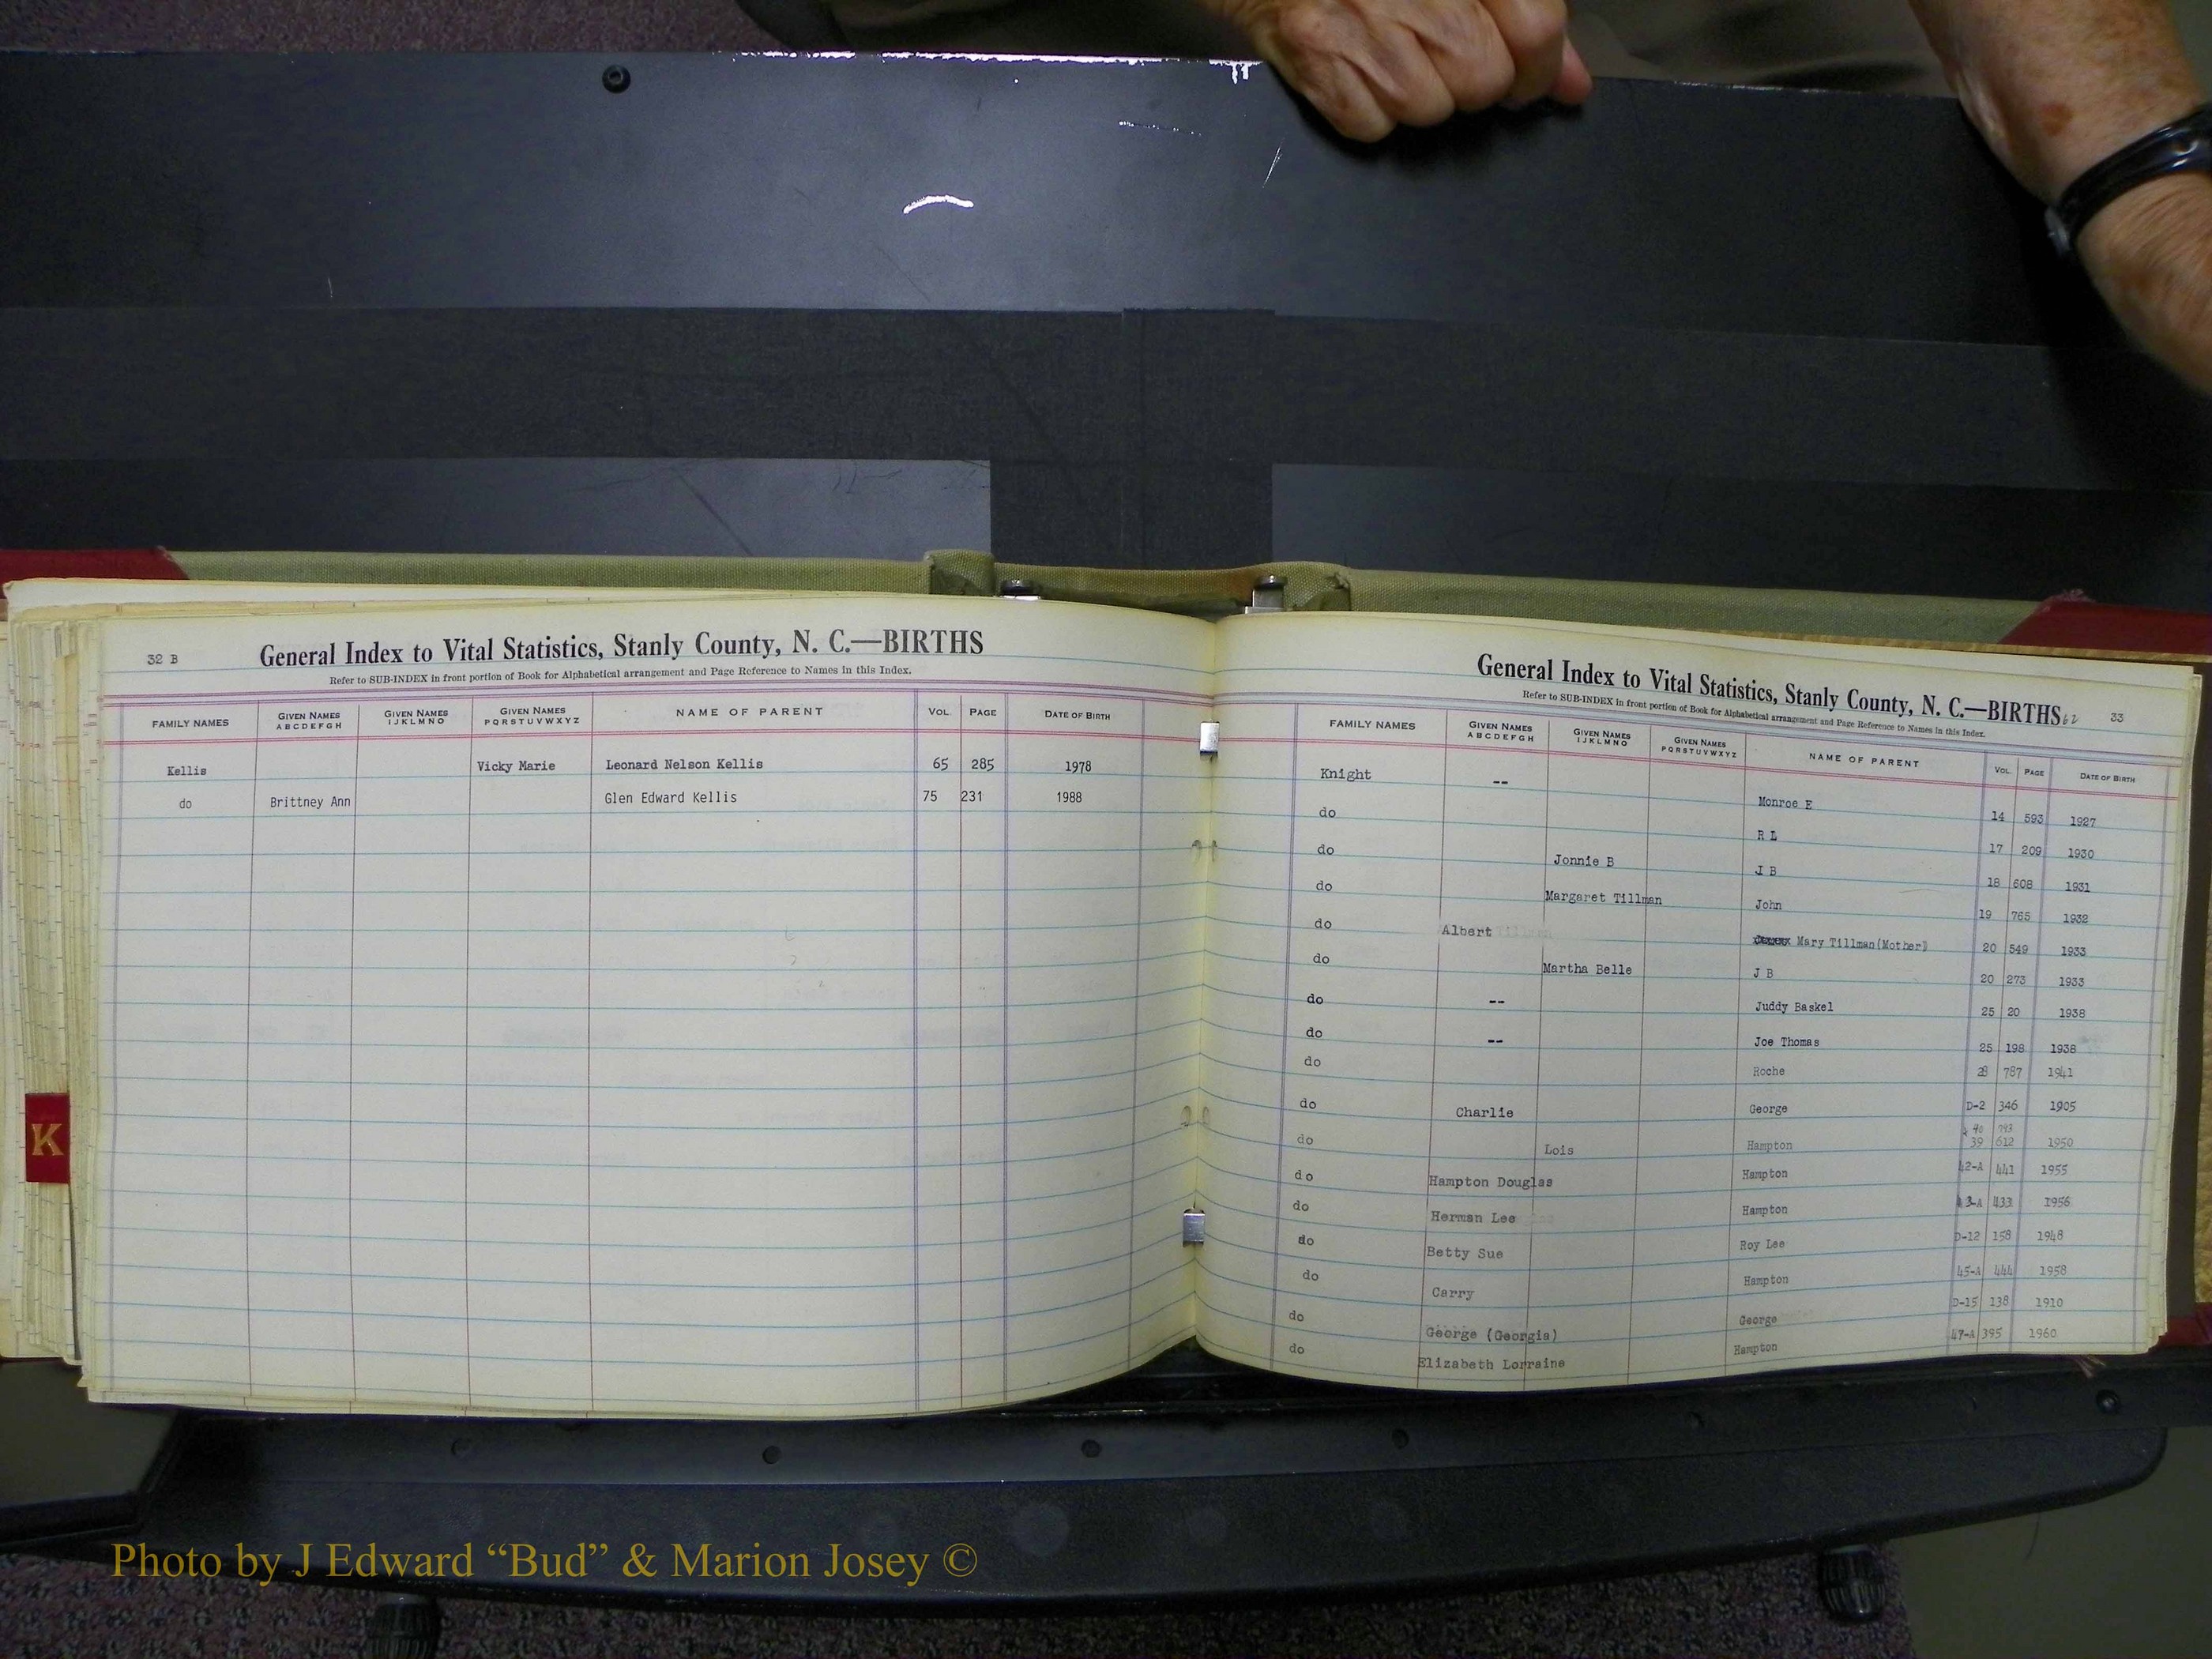 32 B
General Index to Vital Statistics, Stanly County, N. C.—BIRTHS
Refer to SUB-INDEX in front portion of Book for Alphabetical arrangement and Page Reference to Names in this Index.
FAMILY NAMES GIVEN NAMES ABCDEFGH GIVEN NAMES IJKLMNO GIVEN NAMES PQRSTUVWXYZ NAME OF PARENT VOL. PAGE DATE OF BIRTH
Kellis Vicky Marie Leonard Nelson Kellis 65 285 1978
do Brittney Ann Glen Edward Kellis 75 231 1988
K
General Index to Vital Statistics, Stanly County, N. C.—BIRTHS 62 33
Refer to SUB-INDEX in front portion of Book for Alphabetical arrangement and Page Reference to Names in this Index.
FAMILY NAMES GIVEN NAMES ABCDEFGH GIVEN NAMES IJKLMNO GIVEN NAMES PQRSTUVWXYZ NAME OF PARENT VOL. PAGE DATE OF BIRTH
Knight -- Monroe E 14 593 1927
do R L 17 209 1930
do Jonnie B J B 18 608 1931
do Margaret Tillman John 19 765 1932
do Albert Mary Tillman(Mother) 20 549 1933
do Martha Belle J B 20 273 1933
do -- Juddy Baskel 25 20 1938
do -- Joe Thomas 25 198 1938
do Roche 28 787 1941
do Charlie George D-2 346 1905
40 793
do Lois Hampton 39 612 1950
do Hampton Douglas Hampton 42-A 441 1955
do Herman Lee Hampton 43-A 433 1956
do Betty Sue Roy Lee D-12 158 1948
do Carry Hampton 45-A 444 1958
do George (Georgia) George D-15 138 1910
do Elizabeth Lorraine Hampton 47-A 395 1960
Photo by J Edward “Bud” & Marion Josey ©